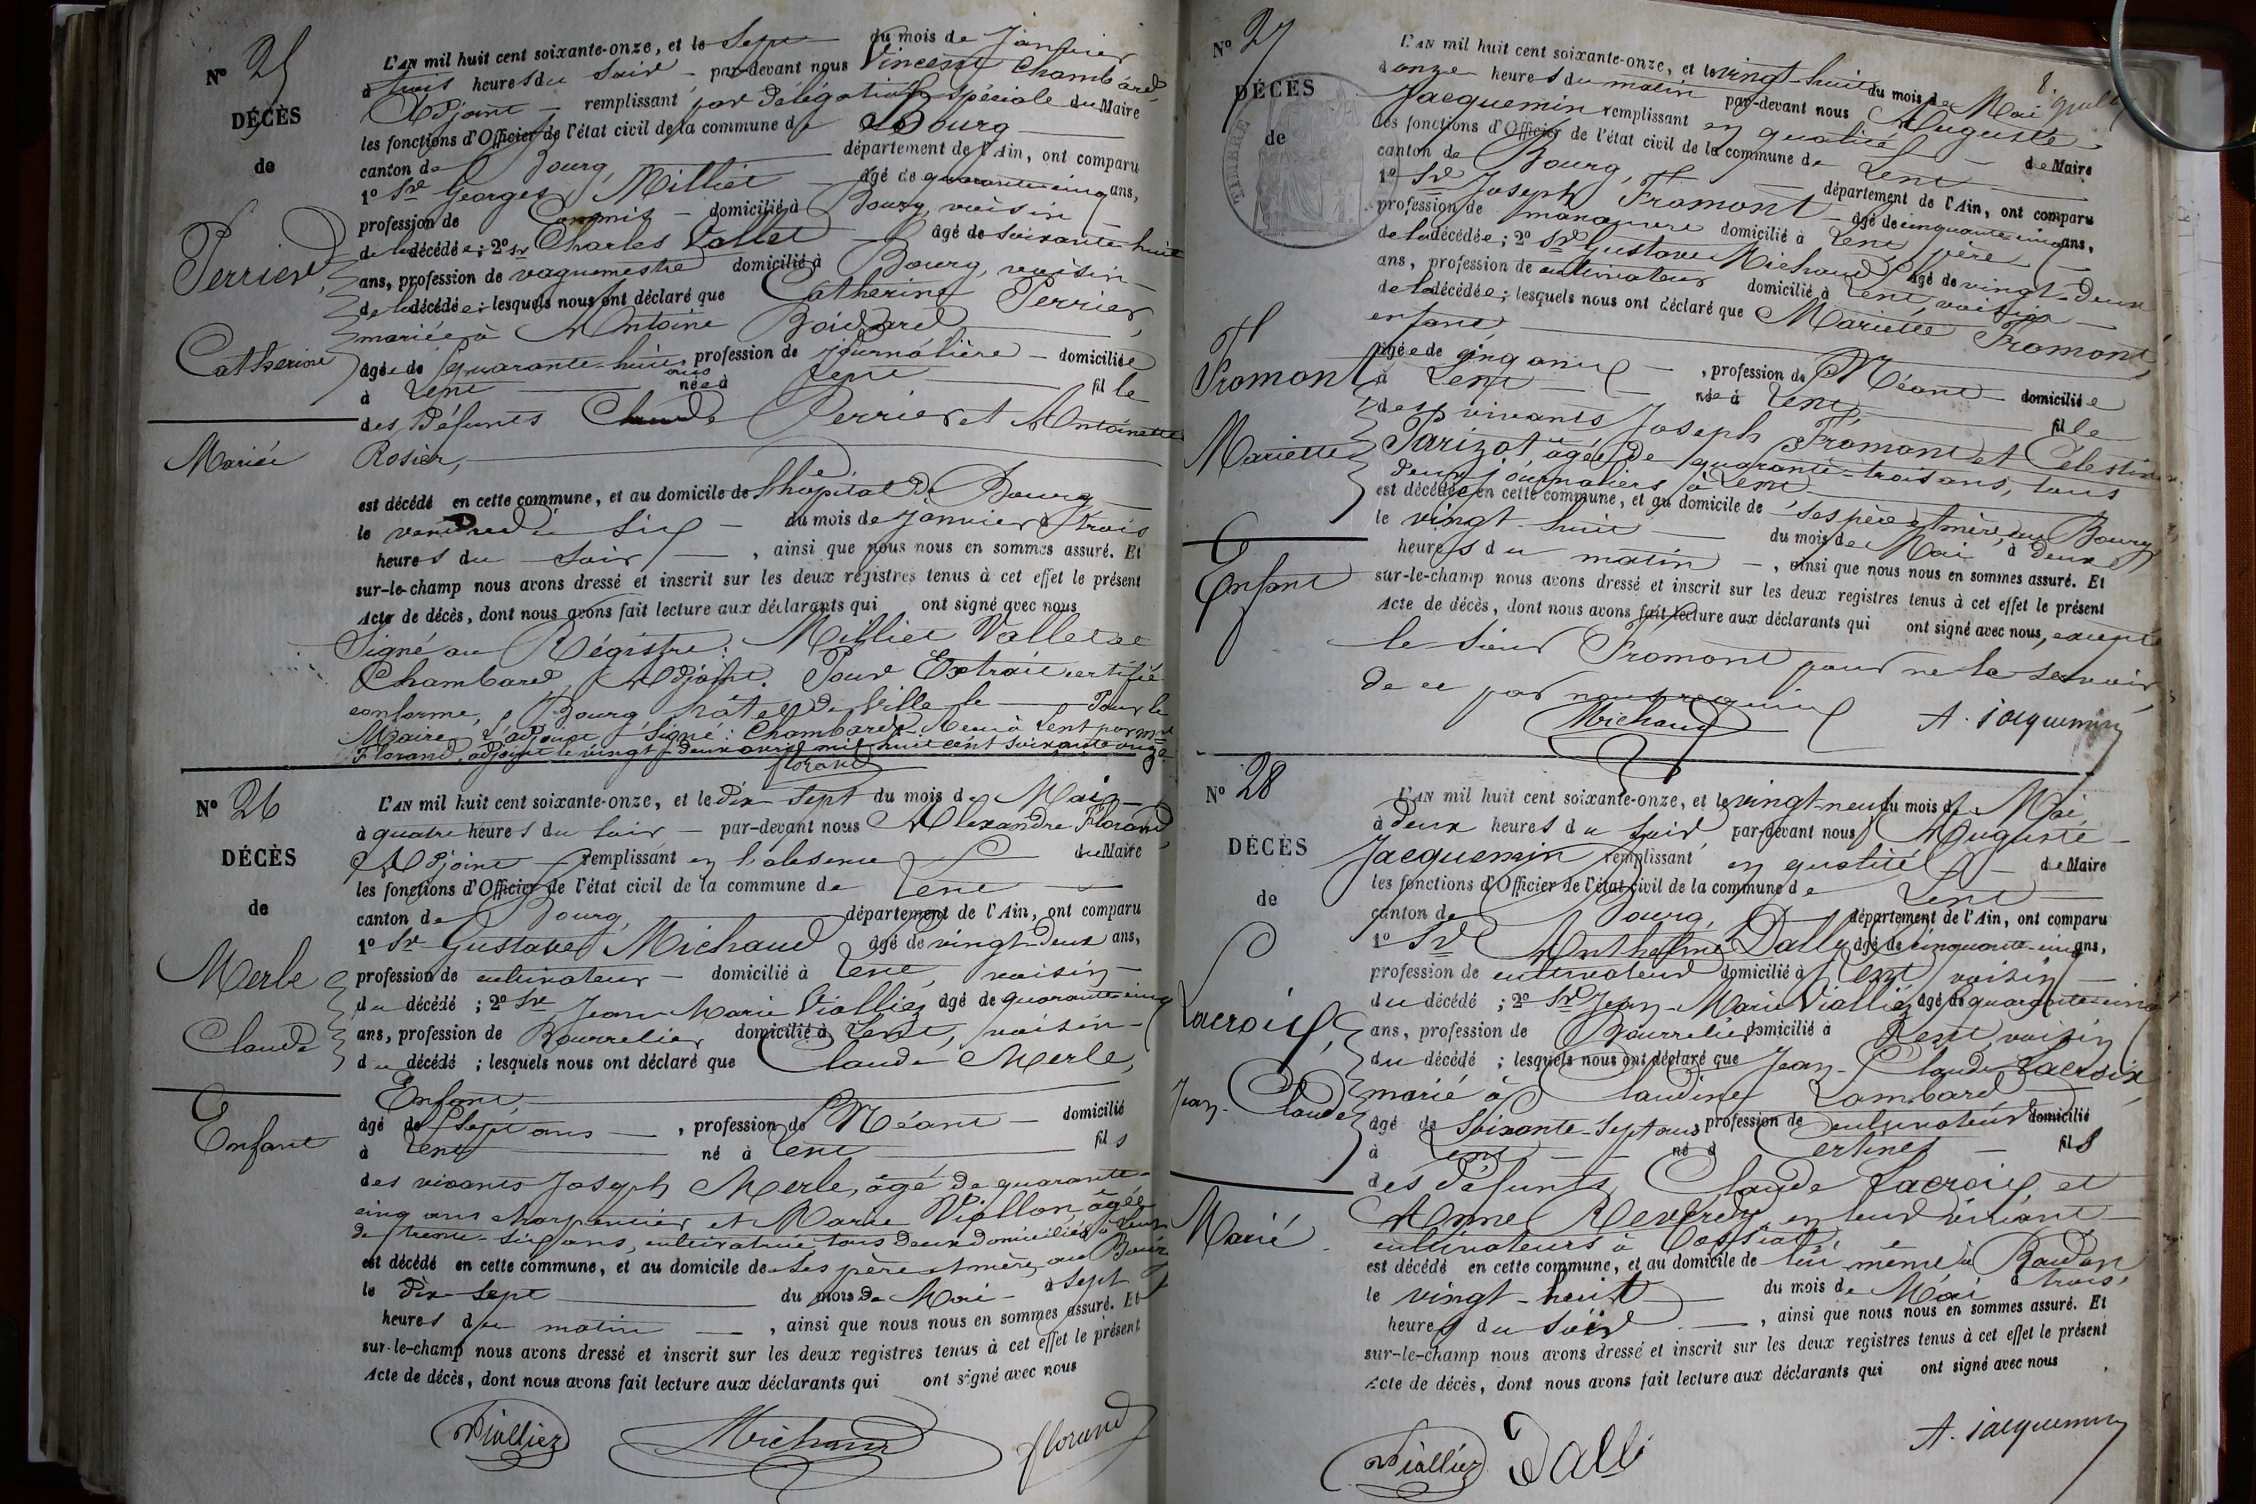 N° 25
DÉCÈS
de
Perrier
Catherine
Mariée
L'AN mil huit cent soixante-onze, et le sept du mois de Janvier
à trois heures du soir par-devant nous Vincent Chambard,
Adjoint remplissant par délégation spéciale du Maire
les fonctions d'Officier de l'état civil de la commune de Bourg
canton de Bourg, département de l'Ain, ont comparu
1° Sr Georges Milliet âgé de quarante-cinq ans,
profession de Commis domicilié à Bourg, voisin
de la décédée; 2° Sr Charles Vallet âgé de soixante-huit
ans, profession de vaguemestre domicilié à Bourg, voisin
de la décédée; lesquels nous ont déclaré que Catherine Perrier,
mariée à Antoine
âgée de quarante-huit ans profession de journalière domiciliée
à Lent née à Lent fille
des défunts Claude Perrier et Antoinette
Rosier,
est décédé en cette commune, et au domicile de l'hôpital de Bourg
le vendredi six du mois de Janvier à trois
heures du soir, ainsi que nous nous en sommes assuré. Et
sur-le-champ nous avons dressé et inscrit sur les deux registres tenus à cet effet le présent
Acte de décès, dont nous avons fait lecture aux déclarants qui ont signé avec nous
Signé au Régistre: Milliet Vallet et
Chambard, Adjoint. Pour Extrait certifié
conforme, Bourg hôtel de Ville le Pour le
Maire, l'adjoint signé: Chambard. Reçu à Lent par Mr
Florand, adjoint le vingt-deux avril mil huit cent soixante onze
florand
N° 26
DÉCÈS
de
Merle
Claude
Enfant
L'AN mil huit cent soixante-onze, et le dix-sept du mois de Mai
à quatre heures du soir par-devant nous Alexandre Florand,
Adjoint remplissant en l'absence du Maire
les fonctions d'Officier de l'état civil de la commune de Lent
canton de Bourg, département de l'Ain, ont comparu
1° Sr Gustave Michaud âgé de vingt-deux ans,
profession de cultivateur domicilié à Lent, voisin
du décédé; 2° Sr Jean Marie Viallier âgé de quarante-cinq
ans, profession de Bourrelier domicilié à Lent, voisin
du décédé; lesquels nous ont déclaré que Claude Merle,
Enfant,
âgé de Sept ans, profession de Néant domicilié
à Lent né à Lent fils
des vivants Joseph Merle, âgé de quarante-
cinq ans charpentier et Marie Viallon, âgée
de trente-six ans, cultivatrice, tous deux domiciliés à Lent
est décédé en cette commune, et au domicile de ses père et mère, au Bourg
le dix-sept du mois de Mai à sept
heures du matin, ainsi que nous nous en sommes assuré. Et
sur-le-champ nous avons dressé et inscrit sur les deux registres tenus à cet effet le présent
Acte de décès, dont nous avons fait lecture aux déclarants qui ont signé avec nous
Viallier Michaud florand
N° 27
DÉCÈS
de
TIMBRE
Fromont
Mariette
Enfant
L'AN mil huit cent soixante-onze, et le vingt-huit du mois de Mai
à onze heures du matin par-devant nous Auguste
Jacquemin remplissant en qualité de Maire
les fonctions d'Officier de l'état civil de la commune de Lent
canton de Bourg, département de l'Ain, ont comparu
1° Sr Joseph Fromont âgé de cinquante-cinq ans,
profession de manœuvre domicilié à Lent, père
de la décédée; 2° Sr Gustave Michaud âgé de vingt-deux
ans, profession de cultivateur domicilié à Lent, voisin
de la décédée; lesquels nous ont déclaré que Mariette Fromont,
enfant
âgée de cinq ans, profession de Néant domiciliée
à Lent née à Lent, fille
des vivants Joseph Fromont et Célestine
Parizot âgée de quarante-trois ans, tous
deux journaliers à Lent
est décédée en cette commune, et au domicile de ses père et mère, au Bourg
le vingt-huit du mois de Mai à deux
heures du matin, ainsi que nous nous en sommes assuré. Et
sur-le-champ nous avons dressé et inscrit sur les deux registres tenus à cet effet le présent
Acte de décès, dont nous avons fait lecture aux déclarants qui ont signé avec nous, excepté
le Sieur Fromont pour ne le savoir,
de ce par nous requis
Michaud A. jacquemin
N° 28
DÉCÈS
de
Lacroix,
Jean-Claude
Marié
L'AN mil huit cent soixante-onze, et le vingt-neuf du mois de Mai,
à deux heures du soir par-devant nous Auguste
Jacquemin remplissant en qualité de Maire
les fonctions d'Officier de l'état civil de la commune de Lent
canton de Bourg, département de l'Ain, ont comparu
1° Sr Anthelme Dally âgé de cinquante-cinq ans,
profession de cultivateur domicilié à Lent, voisin
du décédé; 2° Sr Jean-Marie Viallier, âgé de quarante-cinq
ans, profession de Bourrelier domicilié à Lent, voisin
du décédé; lesquels nous ont déclaré que Jean-Claude Lacroix,
marié à Claudine Lambard
âgé de soixante-sept ans, profession de cultivateur domicilié
à Lent né à Certines fils
des défunts Claude Lacroix, et
Anne en leur vivant
cultivateurs à
est décédé en cette commune, et au domicile de lui-même, à
le vingt-huit du mois de Mai à trois
heures du soir, ainsi que nous nous en sommes assuré. Et
sur-le-champ nous avons dressé et inscrit sur les deux registres tenus à cet effet le présent
Acte de décès, dont nous avons fait lecture aux déclarants qui ont signé avec nous
Viallier Dalli A. jacquemin